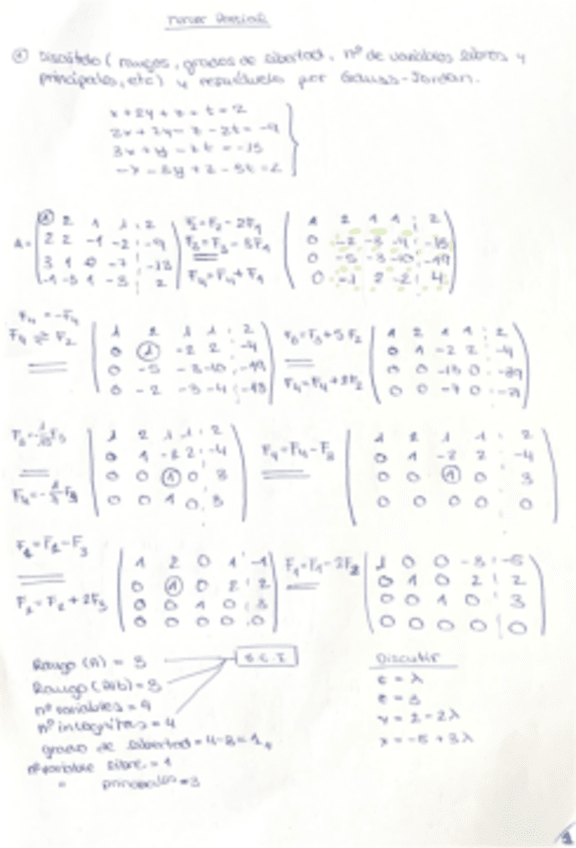 Tercer Parcial
① Discútelo (rangos, grados de libertad, nº de variables libres y
principales, etc) y resuélvelo por Gauss-Jordan.
x + 2y + z + t = 2
2x + 2y - z - 2t = -9
3x + y - 7t = -13
-x - 3y + z - 3t = 2
A = 1 2 1 1 2
2 2 -1 -2 -9
3 1 0 -7 -13
-1 -3 1 -3 2
F2 = F2 - 2F1
F3 = F3 - 3F1
F4 = F4 + F1
1 2 1 1 2
0 -2 -3 -4 -13
0 -5 -3 -10 -19
0 -1 2 -2 4
F4 = -F4
F4 ⇄ F2
1 2 1 1 2
0 1 -2 2 -4
0 -5 -3 -10 -19
0 -2 -3 -4 -13
F3 = F3 + 5F2
F4 = F4 + 2F2
1 2 1 1 2
0 1 -2 2 -4
0 0 -13 0 -39
0 0 -7 0 -21
1 2 1 1 2
0 1 -2 2 -4
0 0 1 0 3
0 0 1 0 3
F4 = F4 - F3
1 2 1 1 2
0 1 -2 2 -4
0 0 1 0 3
0 0 0 0 0
F1 = F1 - F3
F2 = F2 + 2F3
1 2 0 1 -1
0 1 0 2 2
0 0 1 0 3
0 0 0 0 0
F1 = F1 - 2F2
1 0 0 -3 -5
0 1 0 2 2
0 0 1 0 3
0 0 0 0 0
Rango (A) = 3
Rango (A|b) = 3
nº variables = 4
nº incógnitas = 4
S.C.I
grado de libertad = 4-3 = 1
nº variable libre = 1
" principales = 3
Discutir
t = λ
z = 3
y = 2 - 2λ
x = -5 + 3λ
1